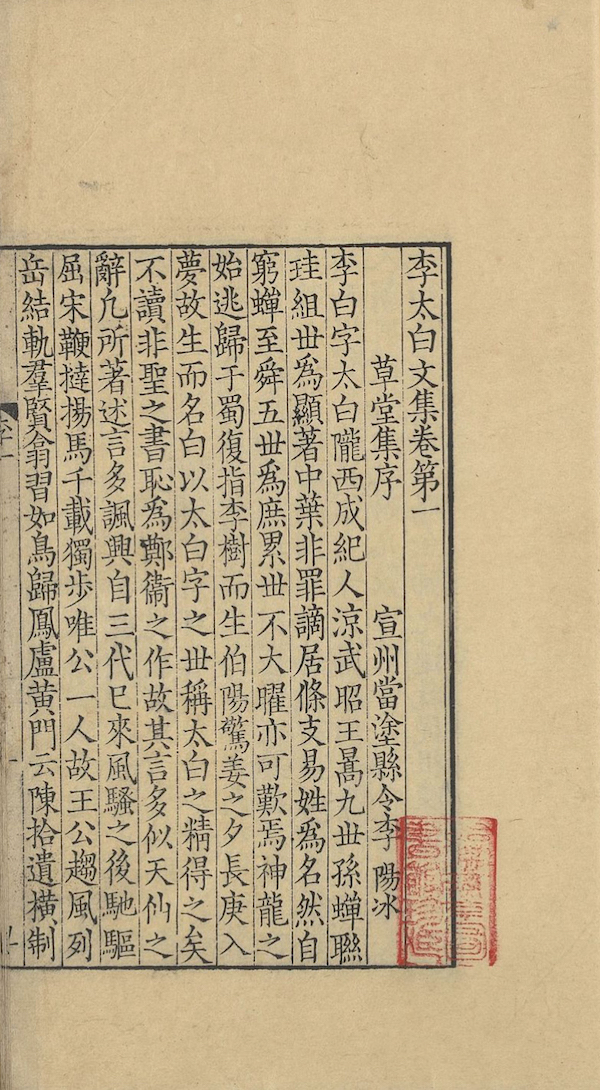 李太白文集卷第一
草堂集序 宣州當塗縣令李 陽冰
李白字太白隴西成紀人涼武昭王暠九丗孫蟬聯
珪組丗為顯著中葉非罪謫居條支易姓為名然自
窮蟬至舜五丗為庶累丗不大曜亦可歎焉神龍之
始逃歸于蜀復指李樹而生伯陽驚姜之夕長庚入
夢故生而名白以太白字之丗稱太白之精得之矣
不讀非聖之書恥為鄭衞之作故其言多似天仙之
辭凢所著述言多諷興自三代已來風騷之後馳驅
屈宋鞭撻揚馬千載獨步唯公一人故王公趨風列
岳結軌羣賢翕習如鳥歸鳳盧黃門云陳拾遺橫制